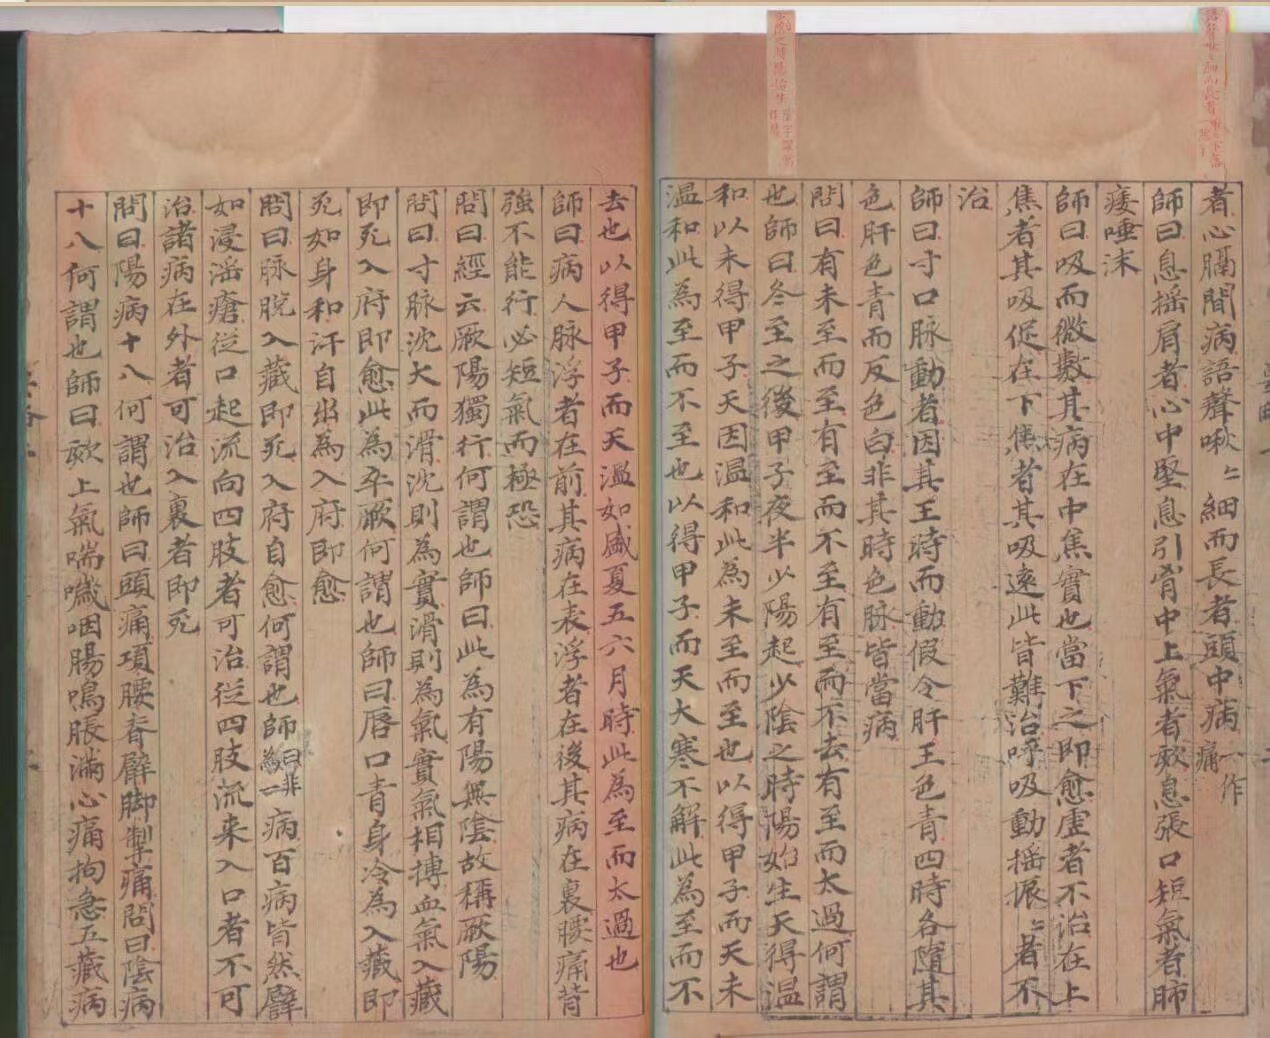 者心膈間病語聲啾〻細而長者頭中病一作痛
師曰息搖肩者心中堅息引胷中上氣者欬息張口短氣者肺
痿唾沫
師曰吸而微數其病在中焦實也當下之即愈虛者不治在上
焦者其吸促在下焦者其吸遠此皆難治呼吸動搖振〻者不
治
師曰寸口脉動者因其王時而動假令肝王色青四時各隨其
色肝色青而反色白非其時色脉皆當病
問曰有未至而至有至而不至有至而不去有至而太過何謂
也師曰冬至之後甲子夜半少陽起少陰之時陽始生天得溫
和以未得甲子天因溫和此為未至而至也以得甲子而天未
溫和此為至而不至也以得甲子而天大寒不解此為至而不
去也以得甲子而天溫如盛夏五六月時此為至而太過也
師曰病人脉浮者在前其病在表浮者在後其病在裏腰痛背
強不能行必短氣而極恐
問曰經云厥陽獨行何謂也師曰此為有陽無陰故稱厥陽
問曰寸脉沈大而滑沈則為實滑則為氣實氣相摶血氣入藏
即死入府即愈此為卒厥何謂也師曰唇口青身冷為入藏即
死如身和汗自出為入府即愈
問曰脉脫入藏即死入府自愈何謂也師曰非為一病百病皆然譬
如浸淫瘡從口起流向四肢者可治從四肢流来入口者不可
治諸病在外者可治入裏者即死
問曰陽病十八何謂也師曰頭痛項腰脊臂脚掣痛問曰陰病
十八何謂也師曰欬上氣喘噦咽腸鳴脹滿心痛拘急五藏病